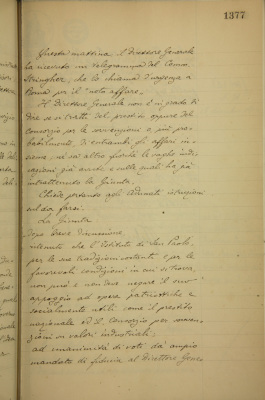 1377
Questa mattina il Direttore Generale
ha ricevuto un telegramma del Comm.
Stringher, che lo chiama d'urgenza a
Roma per il "noto affare".
Il Direttore Generale non è in grado di
dire se si tratti del prestito oppure del
consorzio per le sovvenzioni e, più pro-
babilmente, di entrambi gli affari in-
sieme, nè sa altro fuorchè le vaghe indi-
cazioni già avute e sulle quali ha già
intrattenuto la Giunta.
Chiede pertanto agli adunati istruzioni
sul da farsi.
La Giunta
dopo breve discussione
ritenuto che l'Istituto di San Paolo,
per le sue tradizioni costanti e per le
favorevoli condizioni in cui si trova,
non può e non deve negare il suo
appoggio ad opere patriottiche e
socialmente utili come il prestito
nazionale ed il consorzio per sovven-
zioni su valori industriali;
ad unanimità di voti dà ampio
mandato di fiducia al Direttore Gene-